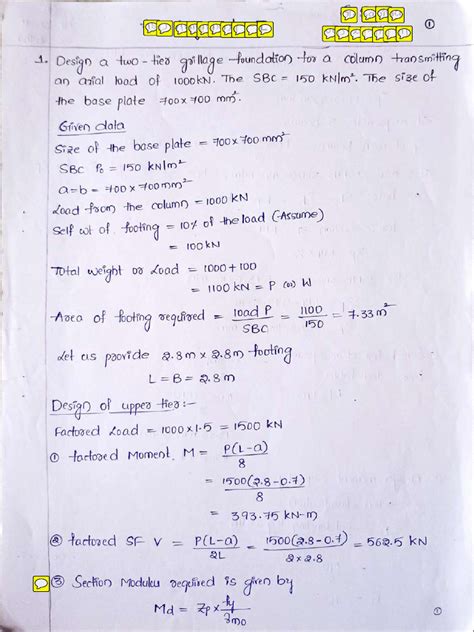 ①
1. Design a two-tier grillage foundation for a column transmitting
an axial load of 1000KN. The SBC = 150 KN/m². The size of
the base plate 700x700 mm².
Given data
Size of the base plate = 700x700 mm²
SBC P₀ = 150 KN/m²
a=b= 700x700mm²
Load from the column = 1000 KN
Self wt of footing = 10% of the load (-Assume)
= 100KN
Total weight or Load = 1000+100
= 1100 KN = P (or) W
Area of footing required = load P / SBC = 1100 / 150 = 7.33 m²
Let us provide 2.8m x 2.8m footing
L = B = 2.8m
Design of upper tier:-
Factored Load = 1000x1.5 = 1500 KN
① factored Moment, M = P(L-a) / 8
= 1500(2.8-0.7) / 8
= 393.75 KN-m
② factored SF V = P(L-a) / 2L = 1500(2.8-0.7) / 2x2.8 = 562.5 KN
③ Section Modulus required is given by
Md = Zp x fy / γm0
①